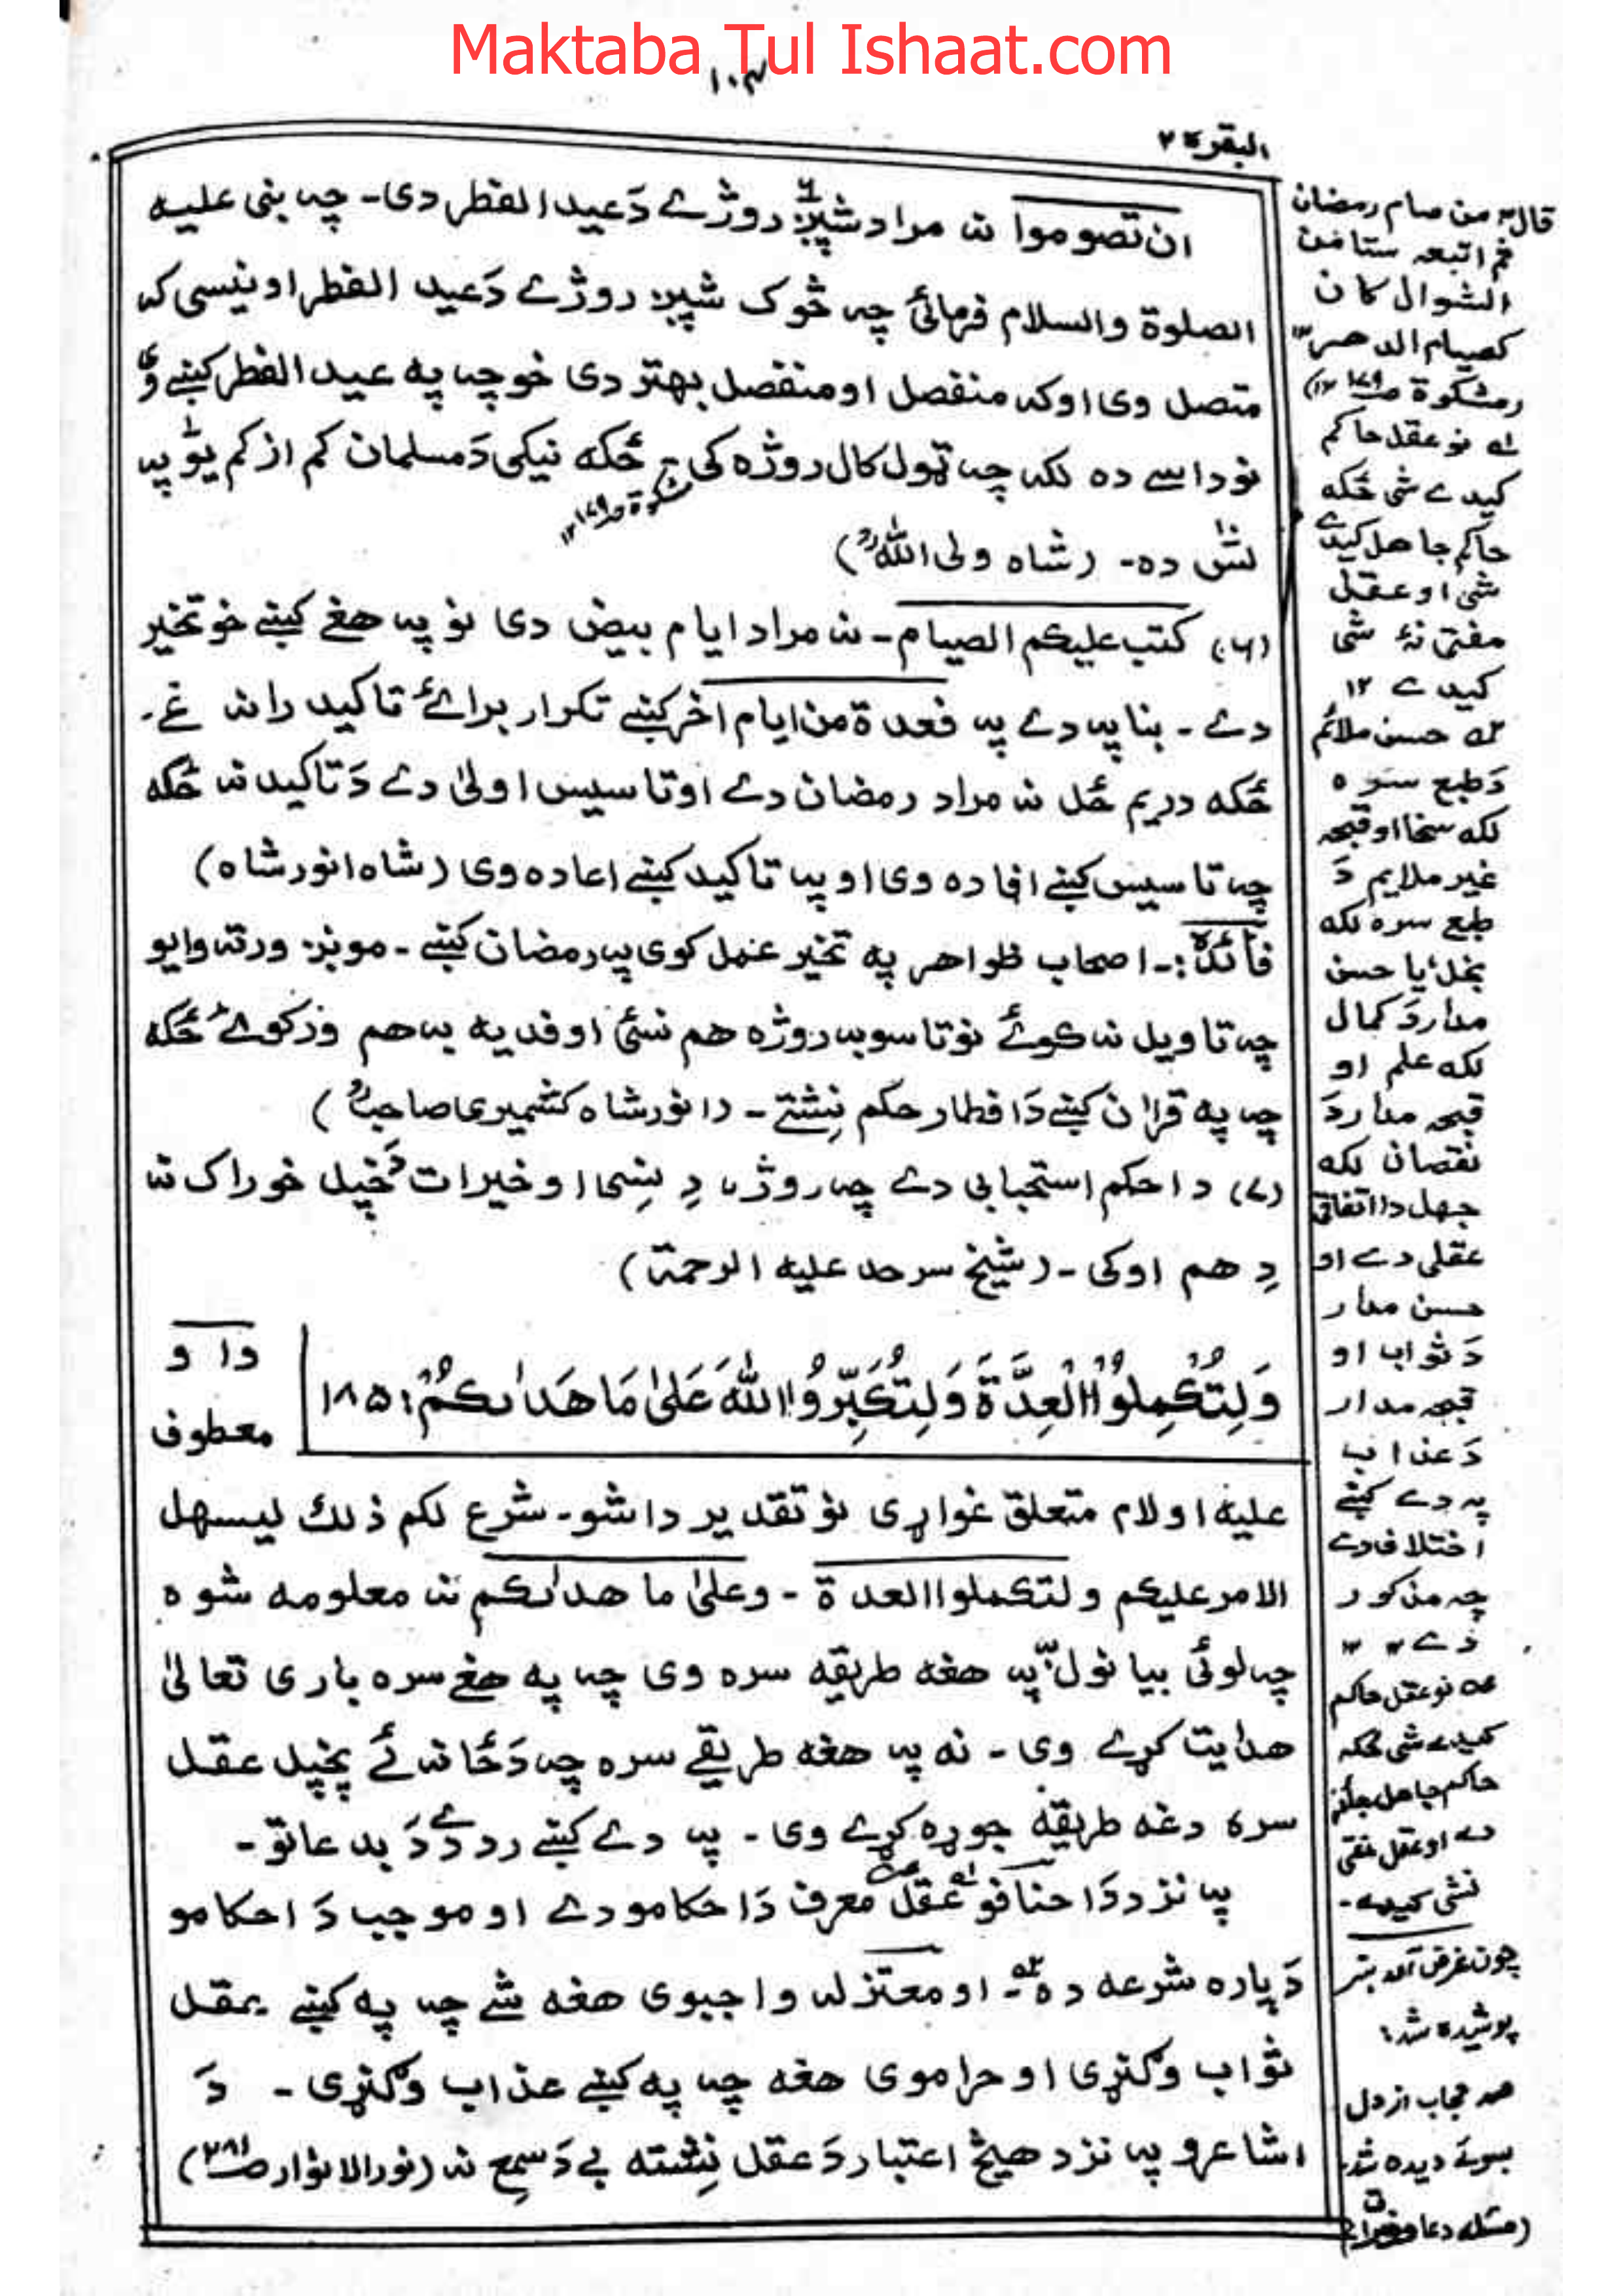 Maktaba Tul Ishaat.com
۱۰۳
البقرة ۲
ان تصوموا نہ مراد شپږ روژے دَ عید الفطر دی۔ چہ بنی علیہ
الصلوة والسلام فرمائی چہ څوک شپږ روژے دَ عید الفطر اونیسی کہ
متصل وی اوکہ منفصل او منفصل بهتر دی خو چہ په عید الفطر کښے وی
نو داسے ده لکہ چہ ټول کال روژه کی ځکه نیکی دَ مسلمان کم از کم یو پہ
مشکوة ص۱۷۹ ۱۲
لس ده۔ (شاہ ولی اللہؒ)
(۶) کتب علیکم الصیام۔ نہ مراد ایام بیض دی نو پہ هغے کښے خو تخیر
دے۔ بنا پہ دے پہ فعدة من ایام اخر کښے تکرار برائے تاکید رانہ غے۔
ځکه دریم ځل نہ مراد رمضان دے او تاسیس اولیٰ دے دَ تاکید نہ ځکه
چہ تاسیس کښے افاده وی او پہ تاکید کښے اعاده وی (شاہ انور شاہ)
فائدة:۔ اصحاب ظواهر په تخیر عمل کوی پہ رمضان کښے۔ موږ ورتہ وایو
چہ تاویل نہ کوئے نو تاسو بہ روژه هم نسئی او فدیه بہ هم ورکوئے ځکه
چہ په قرآن کښے دَ افطار حکم نِشتے۔ (انور شاہ کشمیری صاحبؒ)
(۷) دا حکم استحبابی دے چہ روژہ دِ نِسی او خیرات دَ خپل خوراک نہ
دِ هم اوکی۔ (شیخ سرحد علیه الرحمة)
وَلِتُكْمِلُوا الْعِدَّةَ وَلِتُكَبِّرُوا اللّٰهَ عَلىٰ مَا هَدٰىكُمْ: ۱۸۵
دا و
معطوف
علیه او لام متعلق غواړی نو تقدیر داشو۔ شرع لکم ذلك لیسهل
الامر علیکم و لتکملوا العدة۔ وعلیٰ ما هدٰىکم نہ معلومه شوه
چہ لوئی بیانول پہ هغه طریقه سره وی چہ په هغے سره باری تعالیٰ
هدایت کړے وی۔ نه پہ هغه طریقے سره چہ دَ ځانہ ئے پخپل عقل
سره دغه طریقه جوړه کړے وی۔ پہ دے کښے رد دے دَ بدعاتو۔
پہ نزد دَ احنافو عقل معرف دَ احکامو دے او موجب دَ احکامو
دَ پاره شرعه ده۔ او معتزلہ واجبوی هغه شے چہ په کښے بعقل
ثواب وګنړی او حراموی هغه چہ په کښے عذاب وګنړی۔ دَ
اشاعرو پہ نزد هیڅ اعتبار دَ عقل نِشته بے دَ سمع نہ (نور الانوار ص۲۸۱)
قالؐ من صام رمضان
ثم اتبعہ ستا من
الشوال کان
کصیام الدهر
(مشکوة ص۱۷۹ ۱۲)
لہ نو عقل حاکم
کیدے شی ځکه
حاکم جاهل کیدے
شی او عقل
مفتی نۂ شی
کیدے ۱۲
حسن ملائم
دَ طبع سره
لکه سخا او قبحہ
غیر ملایم دَ
طبع سره لکه
بخل، یا حسن
مدار دَ کمال
لکه علم او
قبحہ مدار دَ
نقصان لکه
جهل دا اتفاقی
عقلی دے او
حسن مدار
دَ ثواب او
قبحہ مدار
دَ عذاب
پہ دے کښے
اختلاف دے
چہ مذکور
دے ۱۲
عہ نو عقل حاکم
کیدے شی ځکه
حاکم جاهل جائز
دے او عقل مفتی
نشی کیدے۔
چون غرض آمد ہنر
پوشیده شد
صد حجاب از دل
بسوئے دیده شد